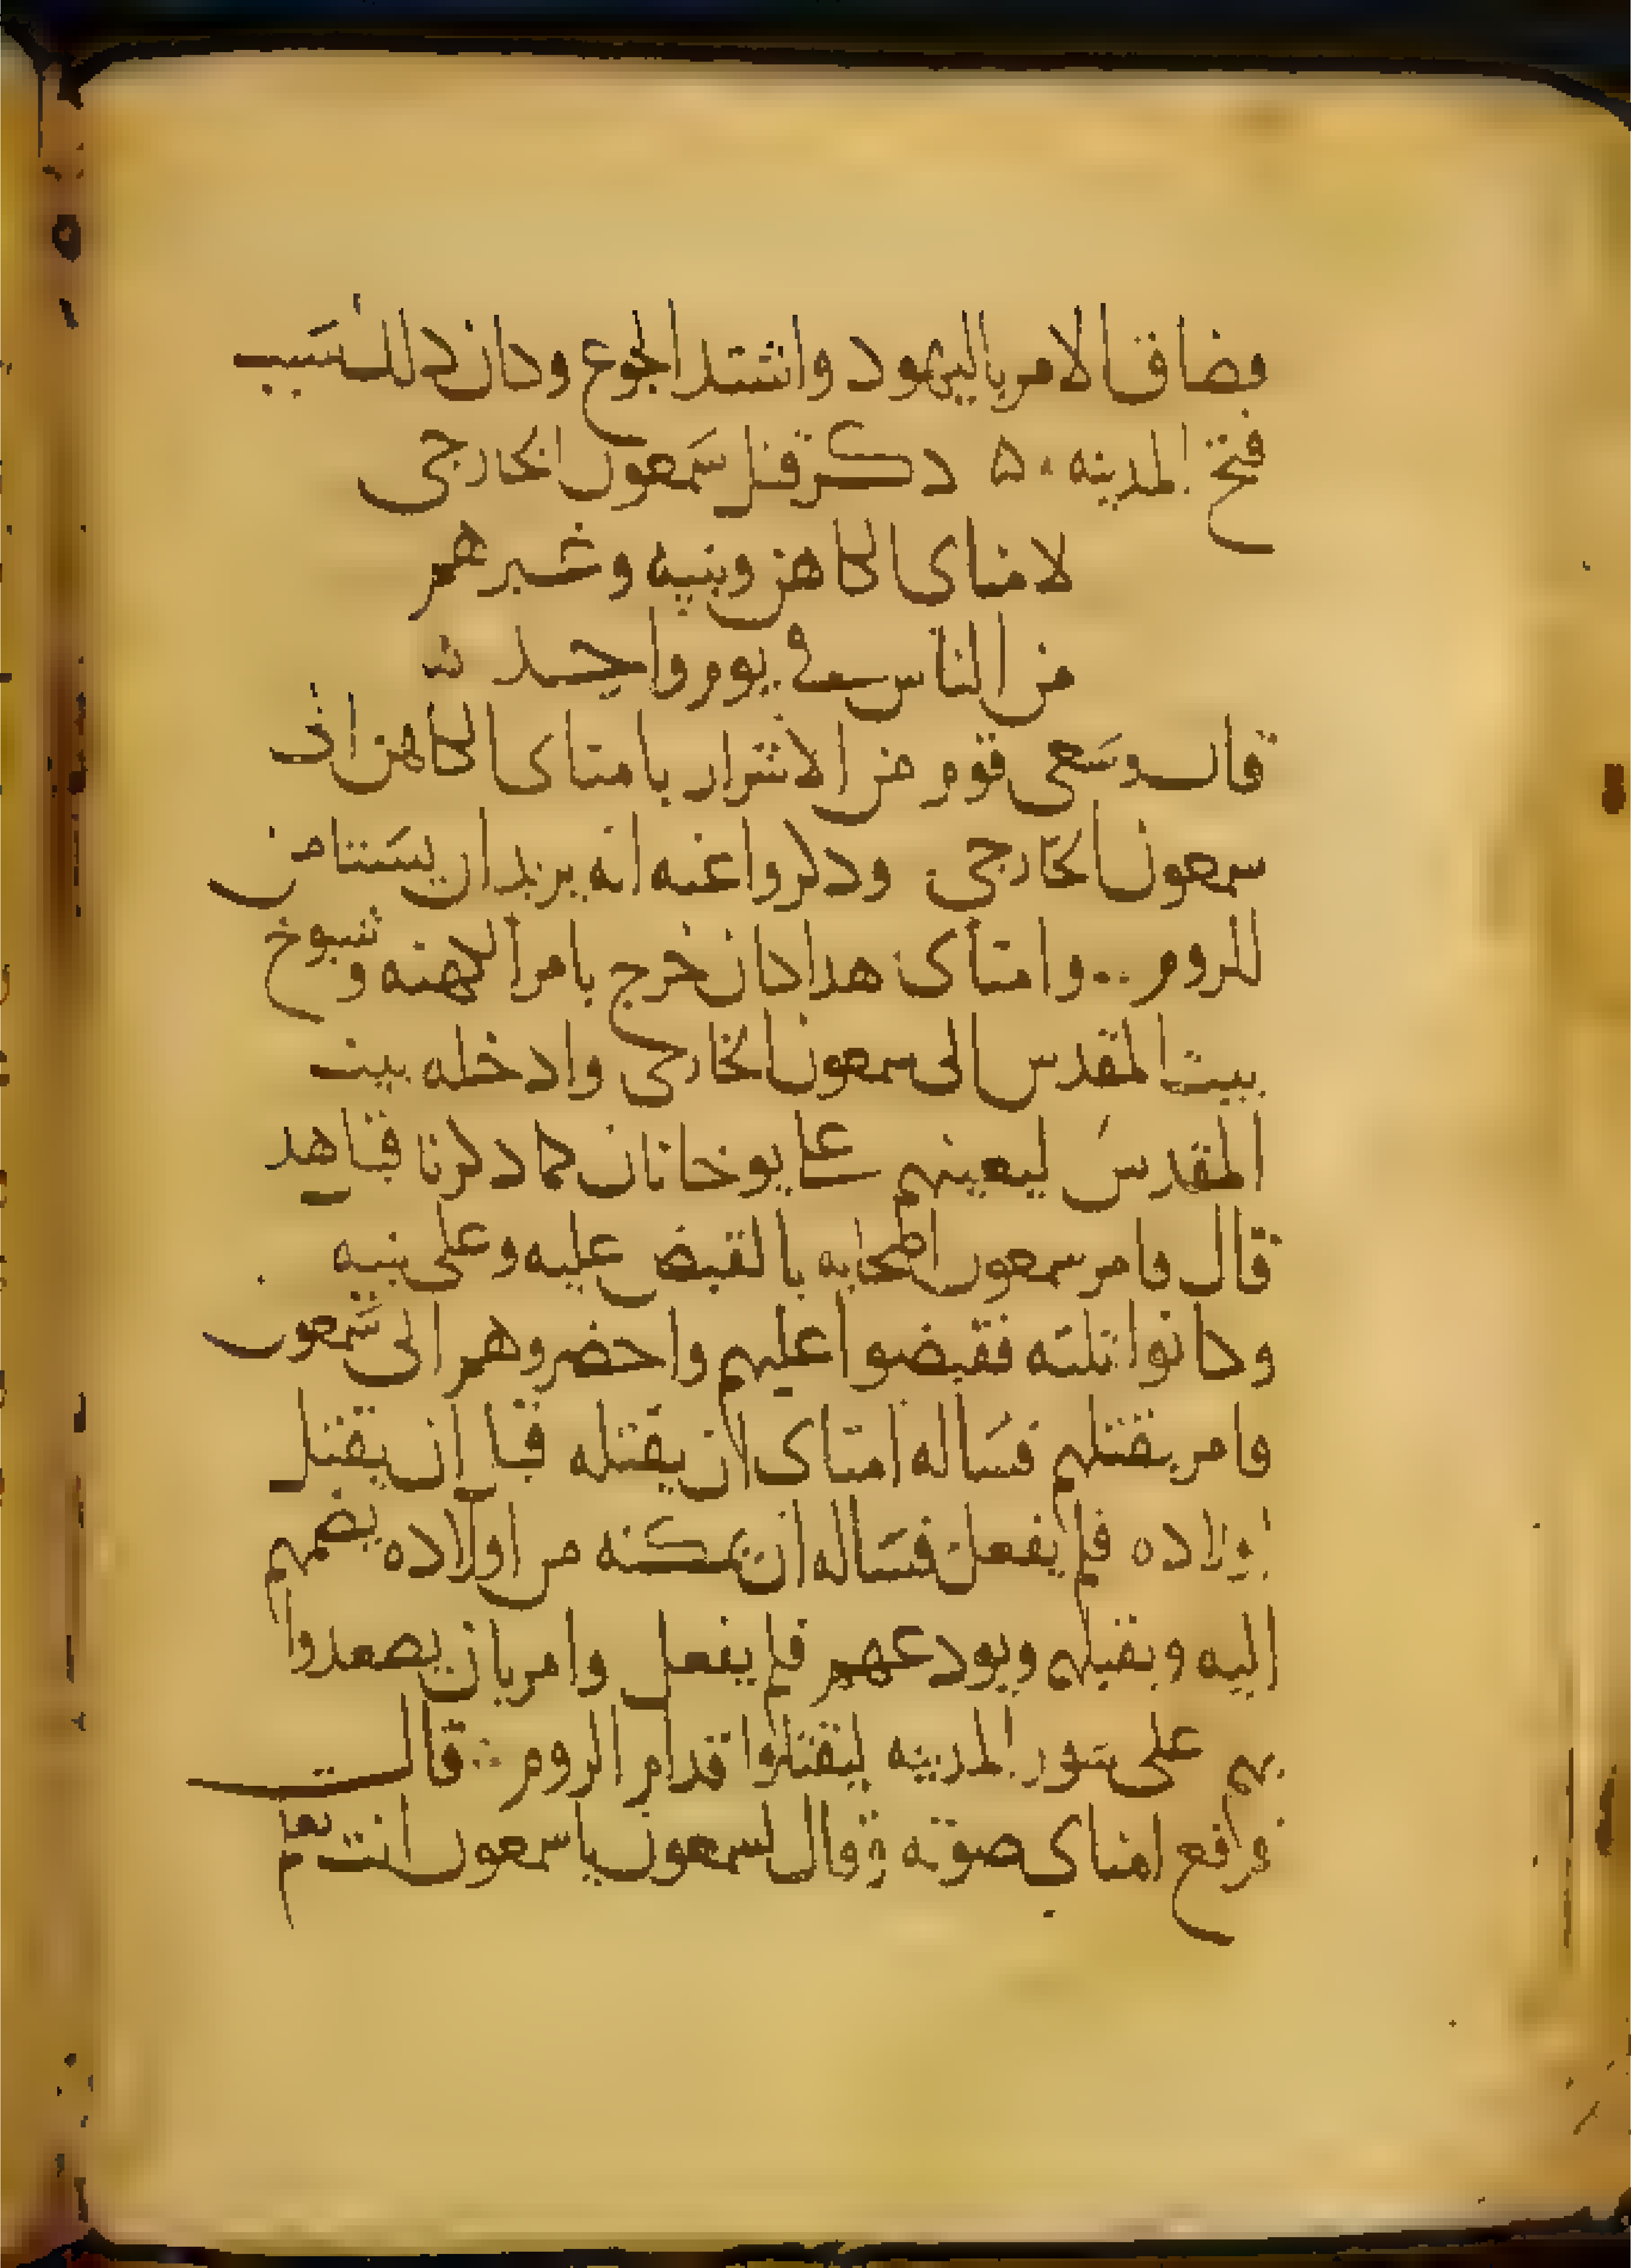 فضاق الامر باليهود واشتد الجوع وكان ذلك سبب
فتح المدينه ٥ ذكر قتل سمعون الخارجى
لامتاى الكاهن وبنيه وغيرهم
من الناس فى يوم واحد
قال وسعى قوم من الاشرار بامتاى الكاهن الى
سمعون الخارجى وذكروا عنه انه يريد ان يستامن
للروم وامتاى هدا كان خرج بامر الكهنه وشيوخ
بيت المقدس الى سمعون الخارجى وادخله بيت
المقدس ليعينهم على يوخانان كما ذكرنا قبل هدا
قال فامر سمعون اصحابه بالقبض عليه وعلى بنيه
وكانوا تلته فقبضوا عليهم واحضروهم الى سمعون
فامر بقتلهم فساله امتاى ان يقتله قبل ان يقتل
اولاده فلم يفعل فساله ان يمكنه من اولاده يضمهم
اليه ويقبلهم ويودعهم فلم يفعل وامر بان يصعدوا
بهم على سور المدينه ليقتلوا قدام الروم قال
فرفع امتاي صوته وقال لسمعون يا سمعون انت تعلم